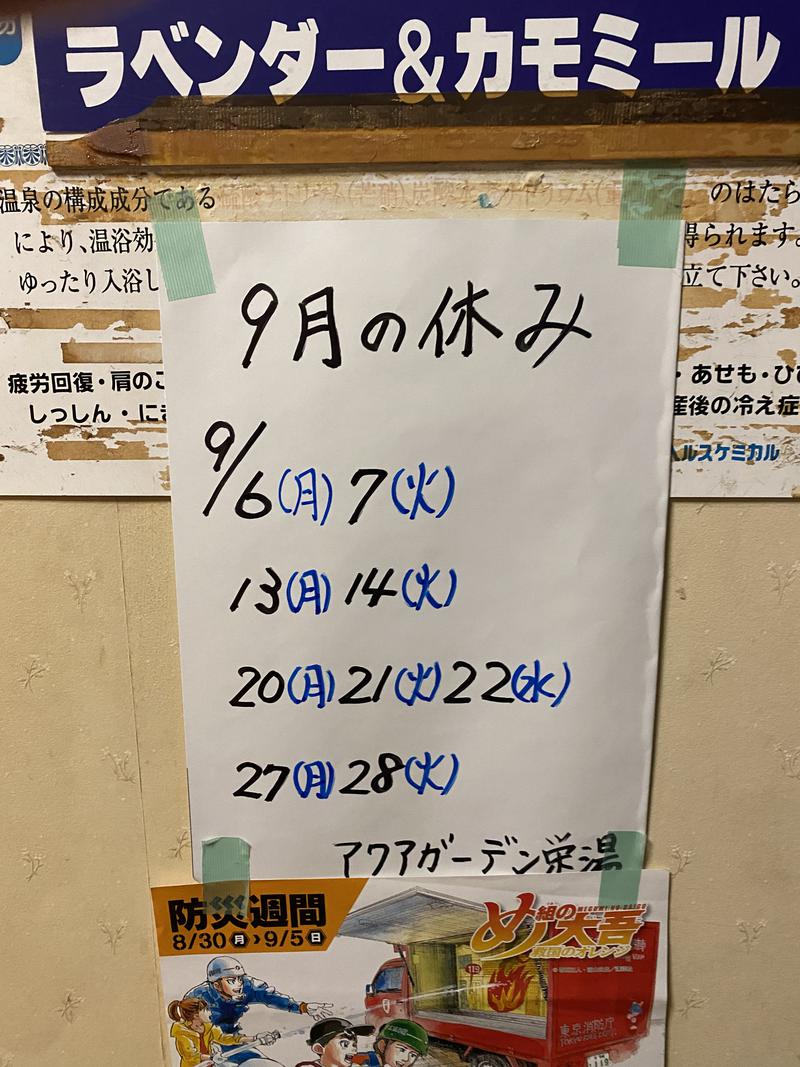 ラベンダー&カモミール
温泉の構成成分である
のはたら
により、温浴効
得られます。
ゆったり入浴し
立て下さい。
疲労回復・肩のこ
・あせも・ひ
しっしん・にき
産後の冷え症
ヘルスケミカル
9月の休み
9/6(月) 7(火)
13(月) 14(火)
20(月) 21(火) 22(水)
27(月) 28(火)
アクアガーデン栄湯
防災週間
8/30月›9/5日
め組の大吾
救国のオレンジ
119
東京消防庁
119